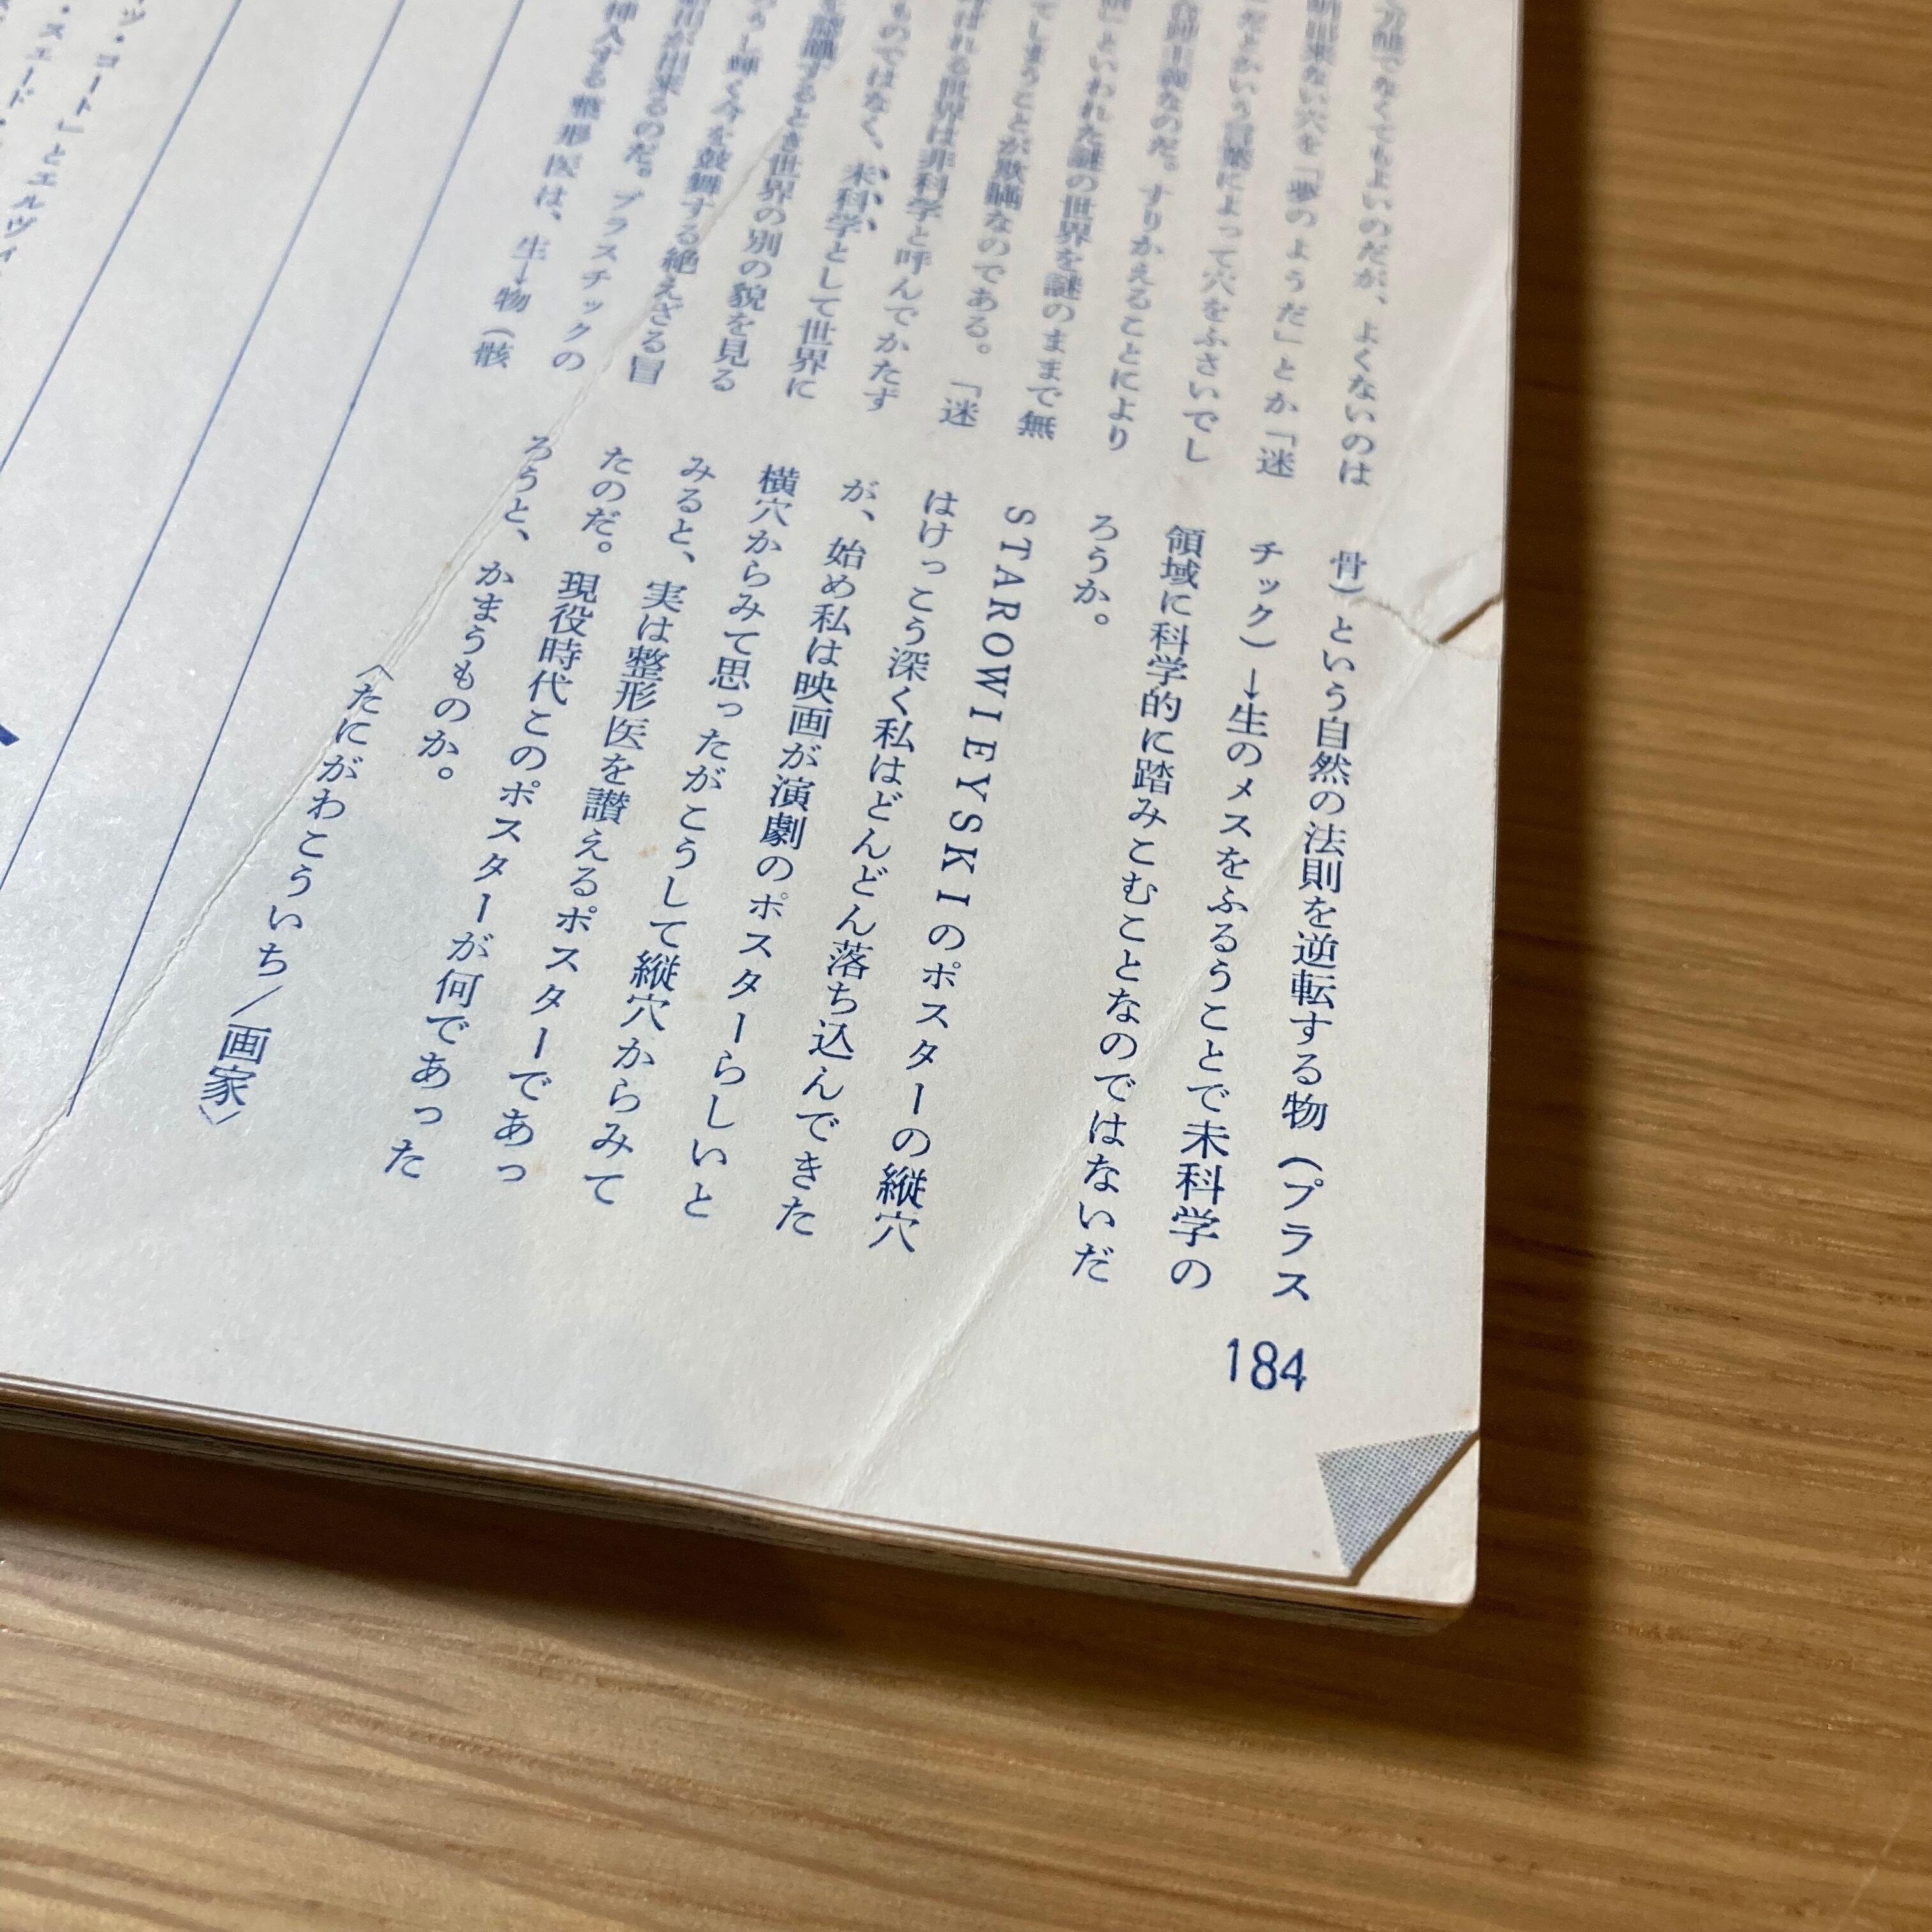 でなくてもよいのだが、よくないのは
出来ない穴を「夢のようだ」とか「迷
だとかいう言葉によって穴をふさいでし
主義なのだ。すりかえることにより
」といわれた謎の世界を謎のままで無
てしまうことが欺瞞なのである。「迷
ばれる世界は非科学と呼んでかたず
ものではなく、未科学として世界に
するとき世界の別の貌を見る
し輝く今を鼓舞する絶えざる冒
出が出来るのだ。プラスチックの
挿入する整形医は、生→物（骸
骨）という自然の法則を逆転する物（プラス
チック）→生のメスをふるうことで未科学の
領域に科学的に踏みこむことなのではないだ
ろうか。
STAROWIEYSKIのポスターの縦穴
はけっこう深く私はどんどん落ち込んできた
が、始め私は映画が演劇のポスターらしいと
横穴からみて思ったがこうして縦穴からみて
みると、実は整形医を讃えるポスターであっ
たのだ。現役時代このポスターが何であった
ろうと、かまうものか。
〈たにがわこういち／画家〉
ツ・コート」とエルヴィ
・スエード・
184